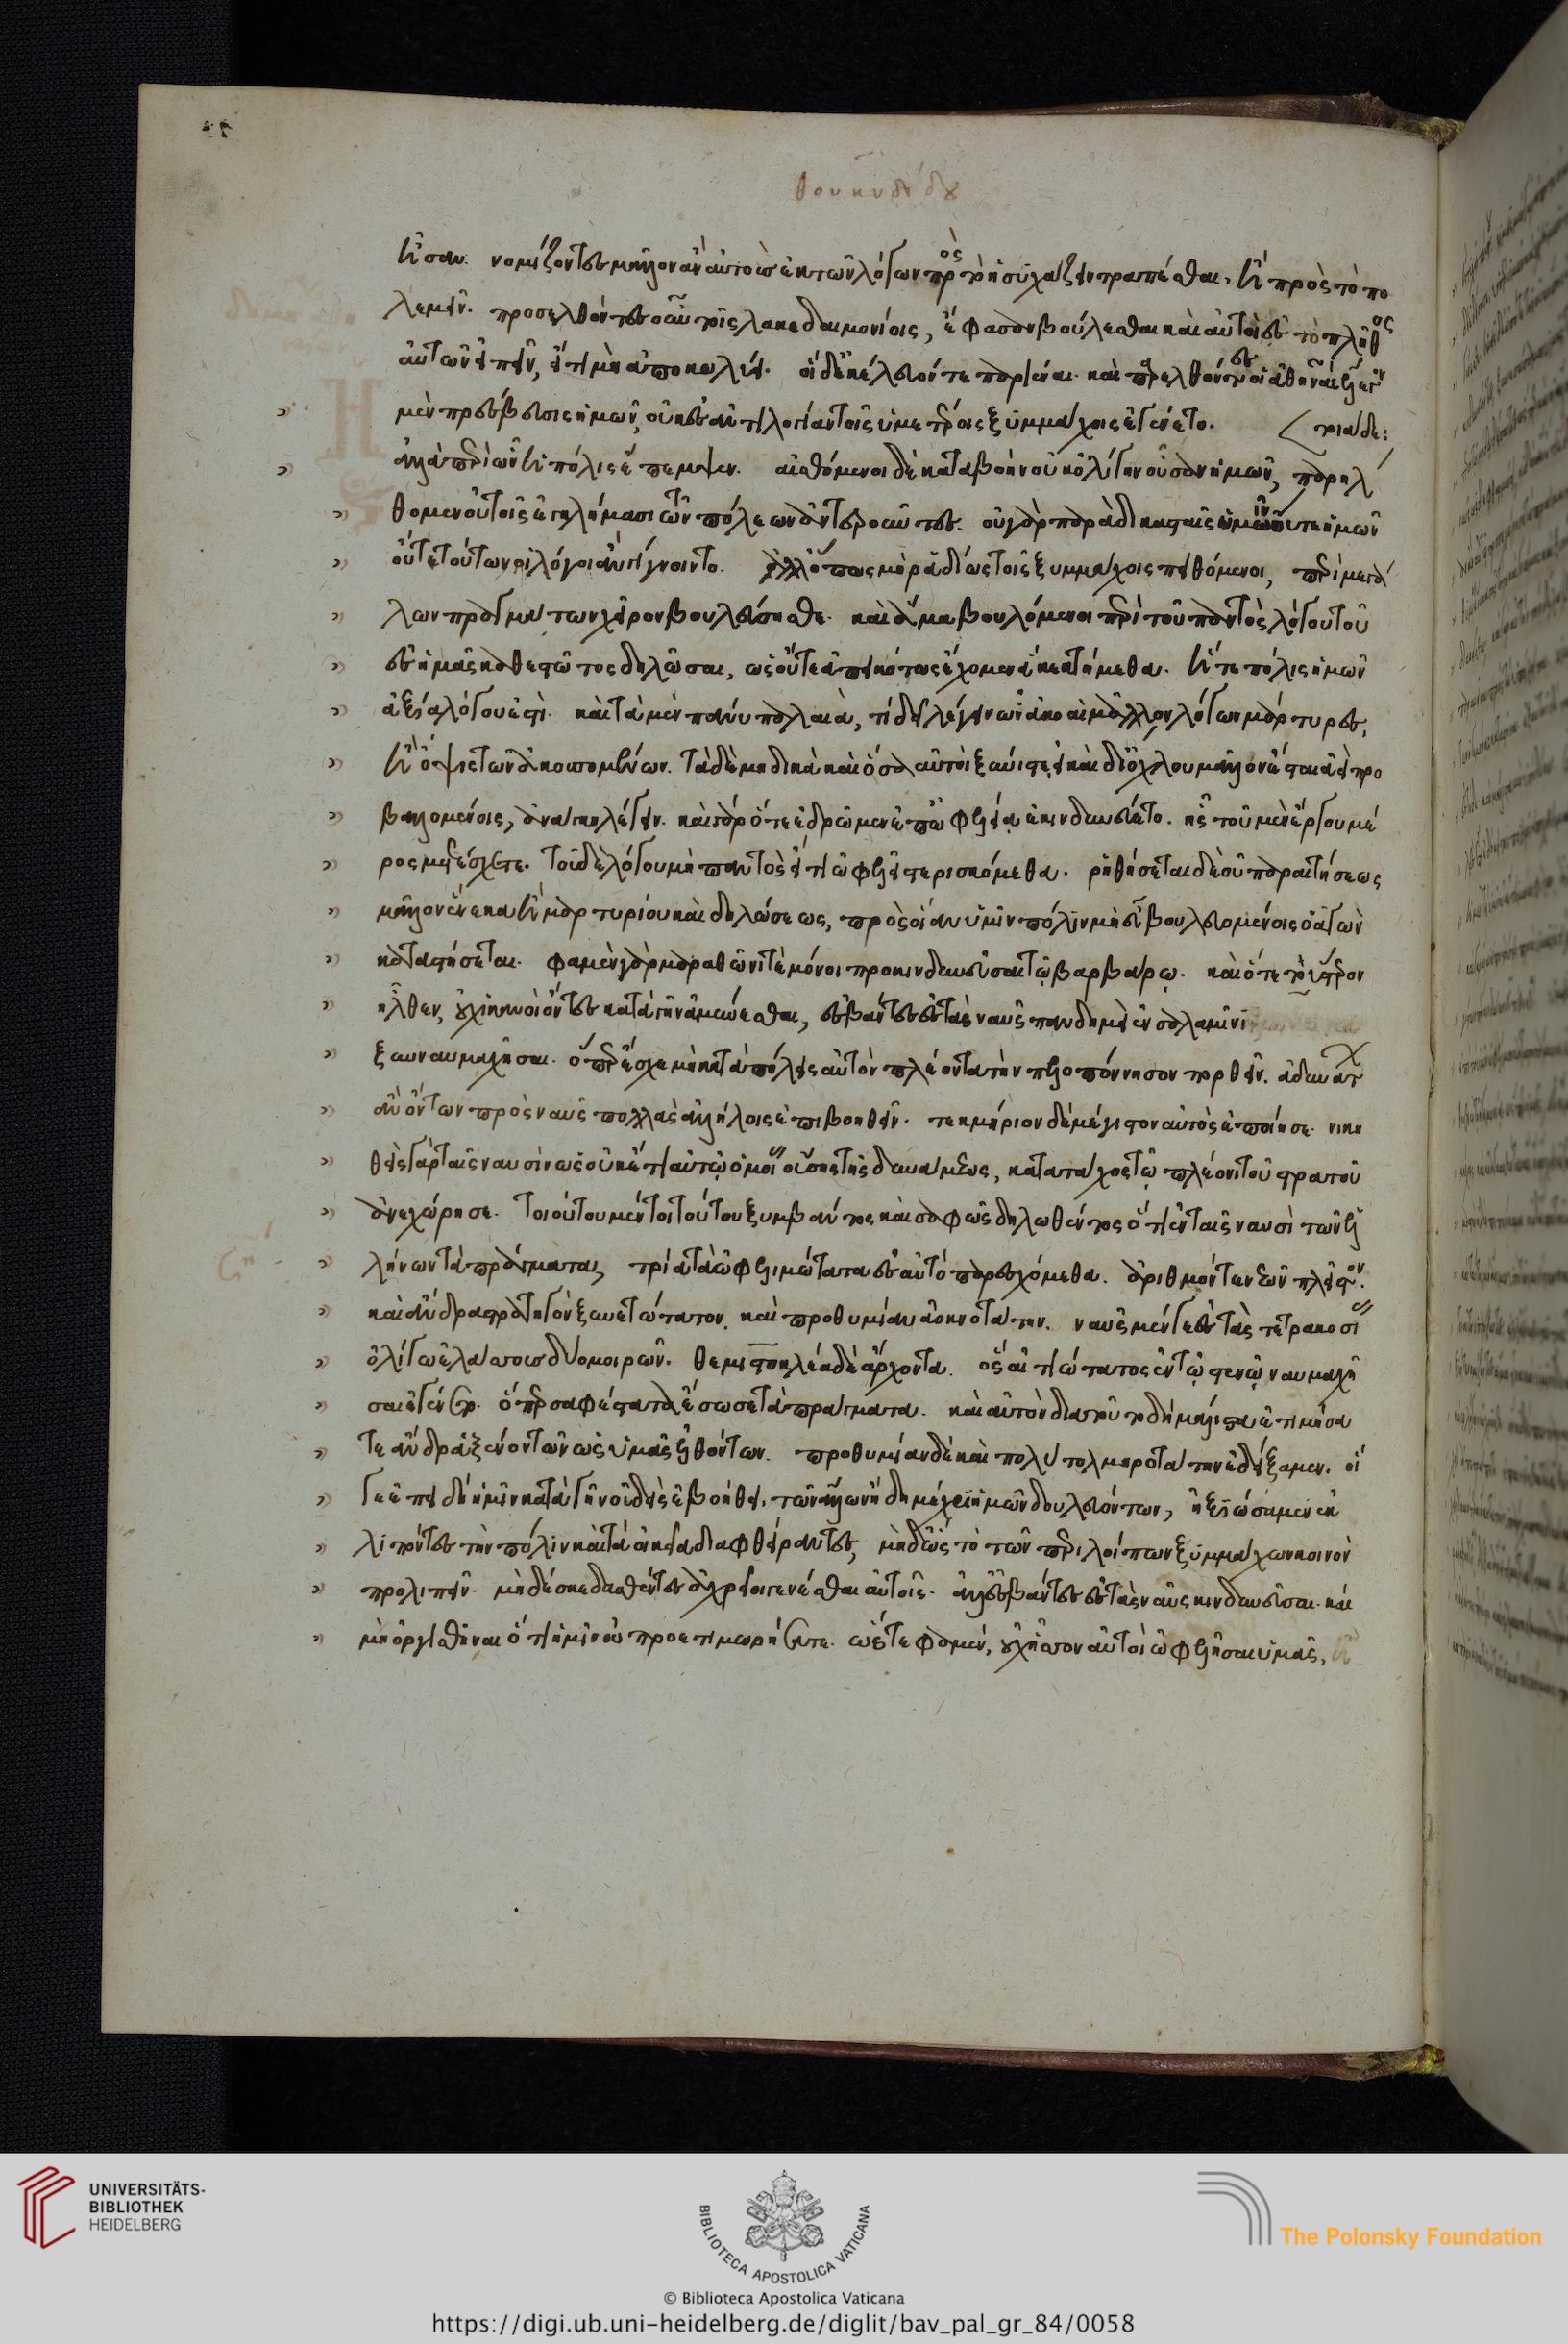 θουκυδίδου
ἢ σαν. νομίζοντες μᾶλλον ἂν αὐτοὺς ἐκ τῶν λόγων πρὸς τὸ ἡσυχάζειν τραπέσθαι, ἢ πρὸς τὸ πο
λεμεῖν. προσελθόντες οὖν τοῖς λακεδαιμονίοις, ἔφασαν βούλεσθαι καὶ αὐτοὶ ἐς τὸ πλῆθος
αὐτῶν εἰπεῖν, εἴ τι μὴ ἀποκωλύει. οἱ δὲ ἐκέλευόν τε παριέναι. καὶ παρελθόντες οἱ ἀθηναῖοι ἔλεγον
μὲν πρέσβευσις ἡμῶν, οὐκ ἐς ἀντιλογίαν τοῖς ὑμετέροις ξυμμάχοις ἐγένετο. τοιάδε:
ἀλλὰ περὶ ὧν ἡ πόλις ἔπεμψεν. αἰσθόμενοι δὲ καταβοὴν οὐκ ὀλίγην οὖσαν ἡμῶν, παρήλ
θομεν οὐ τοῖς ἐγκλήμασι τῶν πόλεων ἀντεροῦντες. οὐ γὰρ παρὰ δικασταῖς ὑμῖν οὔτε ἡμῶν
οὔτε τούτων οἱ λόγοι ἂν γίγνοιντο. ἀλλ' ὅπως μὴ ῥᾳδίως τοῖς ξυμμάχοις πειθόμενοι, περὶ μεγά
λων πραγμάτων χεῖρον βουλεύσησθε. καὶ ἅμα βουλόμενοι περὶ τοῦ παντὸς λόγου τοῦ
ἐς ἡμᾶς καθεστῶτος δηλῶσαι, ὡς οὔτε ἀπεικότως ἔχομεν ἃ κεκτήμεθα. ἥ τε πόλις ἡμῶν
ἀξία λόγου ἐστί. καὶ τὰ μὲν πάνυ παλαιὰ, τί δεῖ λέγειν ὧν ἀκοαὶ μᾶλλον λόγων μάρτυρες,
ἢ ὄψις τῶν ἀκουσομένων. τὰ δὲ μηδικὰ καὶ ὅσα αὐτοὶ ξύνιστε, εἰ καὶ δι' ὄχλου μᾶλλον ἔσται ἀεὶ προ
βαλλομένοις, ἀνάγκη λέγειν. καὶ γὰρ ὅτε ἐδρῶμεν ἐπ' ὠφελείᾳ ἐκινδυνεύετο. ἧς τοῦ μὲν ἔργου μέ
ρος μετέσχετε. τοῦ δὲ λόγου μὴ παντὸς εἴ τι ὠφελεῖ στερισκόμεθα. ῥηθήσεται δὲ οὐ παραιτήσεως
μᾶλλον ἕνεκα ἢ μαρτυρίου καὶ δηλώσεως, πρὸς οἵαν ὑμῖν πόλιν μὴ εὖ βουλευομένοις ὁ ἀγὼν
καταστήσεται. φαμὲν γὰρ μαραθῶνί τε μόνοι προκινδυνεῦσαι τῷ βαρβάρῳ. καὶ ὅτε τὸ ὕστερον
ἦλθεν, οὐχ ἱκανοὶ ὄντες κατὰ γῆν ἀμύνεσθαι, ἐσβάντες ἐς τὰς ναῦς πανδημεὶ ἐν σαλαμῖνι
ξυνναυμαχῆσαι. ὅπερ ἔσχε μὴ κατὰ πόλεις αὐτὸν πλέοντα τὴν πελοπόννησον πορθεῖν. ἀδυνάτ
ἂν ὄντων πρὸς ναῦς πολλὰς ἀλλήλοις ἐπιβοηθεῖν. τεκμήριον δὲ μέγιστον αὐτὸς ἐποίησε. νικη
θεὶς γὰρ ταῖς ναυσὶν ὡς οὐκέτι αὐτῷ ὁμοίας οὔσης τῆς δυνάμεως, κατὰ τάχος τῷ πλέονι τοῦ στρατοῦ
ἀνεχώρησε. τοιούτου μέντοι τούτου ξυμβάντος καὶ σαφῶς δηλωθέντος ὅτι ἐν ταῖς ναυσὶ τῶν ἑλ
λήνων τὰ πράγματα, τρία τὰ ὠφελιμώτατα ἐς αὐτὸ παρεσχόμεθα. ἀριθμόν τε νεῶν πλεῖστον.
καὶ ἄνδρα στρατηγὸν ξυνετώτατον. καὶ προθυμίαν ἀοκνοτάτην. ναῦς μέν γε ἐς τὰς τετρακοσί
ὀλίγῳ ἐλάσσους δύο μοιρῶν. θεμιστοκλέα δὲ ἄρχοντα. ὃς αἰτιώτατος ἐν τῷ στενῷ ναυμαχῆ
σαι ἐγένετο. ὅπερ σαφέστατα ἔσωσε τὰ πράγματα. καὶ αὐτὸν διὰ τοῦτο δὴ μάλιστα ἐτιμήσα
τε ἄνδρα ξένον τῶν ὡς ὑμᾶς ἐλθόντων. προθυμίαν δὲ καὶ πολὺ τολμηροτάτην ἐδείξαμεν. οἵ
γε ἐπειδὴ ἡμῖν κατὰ γῆν οὐδεὶς ἐβοήθει, τῶν ἄλλων ἤδη μέχρι ἡμῶν δουλευόντων, ἠξιώσαμεν ἐκ
λιπόντες τὴν πόλιν καὶ τὰ οἰκεῖα διαφθείραντες, μηδ' ὣς τὸ τῶν περιλοίπων ξυμμάχων κοινὸν
προλιπεῖν. μηδὲ σκεδασθέντες ἀχρεῖοι γενέσθαι αὐτοῖς. ἀλλ' ἐσβάντες ἐς τὰς ναῦς κινδυνεῦσαι. καὶ
μὴ ὀργισθῆναι ὅτι ἡμῖν οὐ προετιμωρήσατε. ὥστε φαμὲν, οὐχ ἧσσον αὐτοὶ ὠφελῆσαι ὑμᾶς, ἢ
UNIVERSITÄTS-
BIBLIOTHEK
HEIDELBERG
BIBLIOTECA APOSTOLICA VATICANA
The Polonsky Foundation
© Biblioteca Apostolica Vaticana
https://digi.ub.uni-heidelberg.de/diglit/bav_pal_gr_84/0058